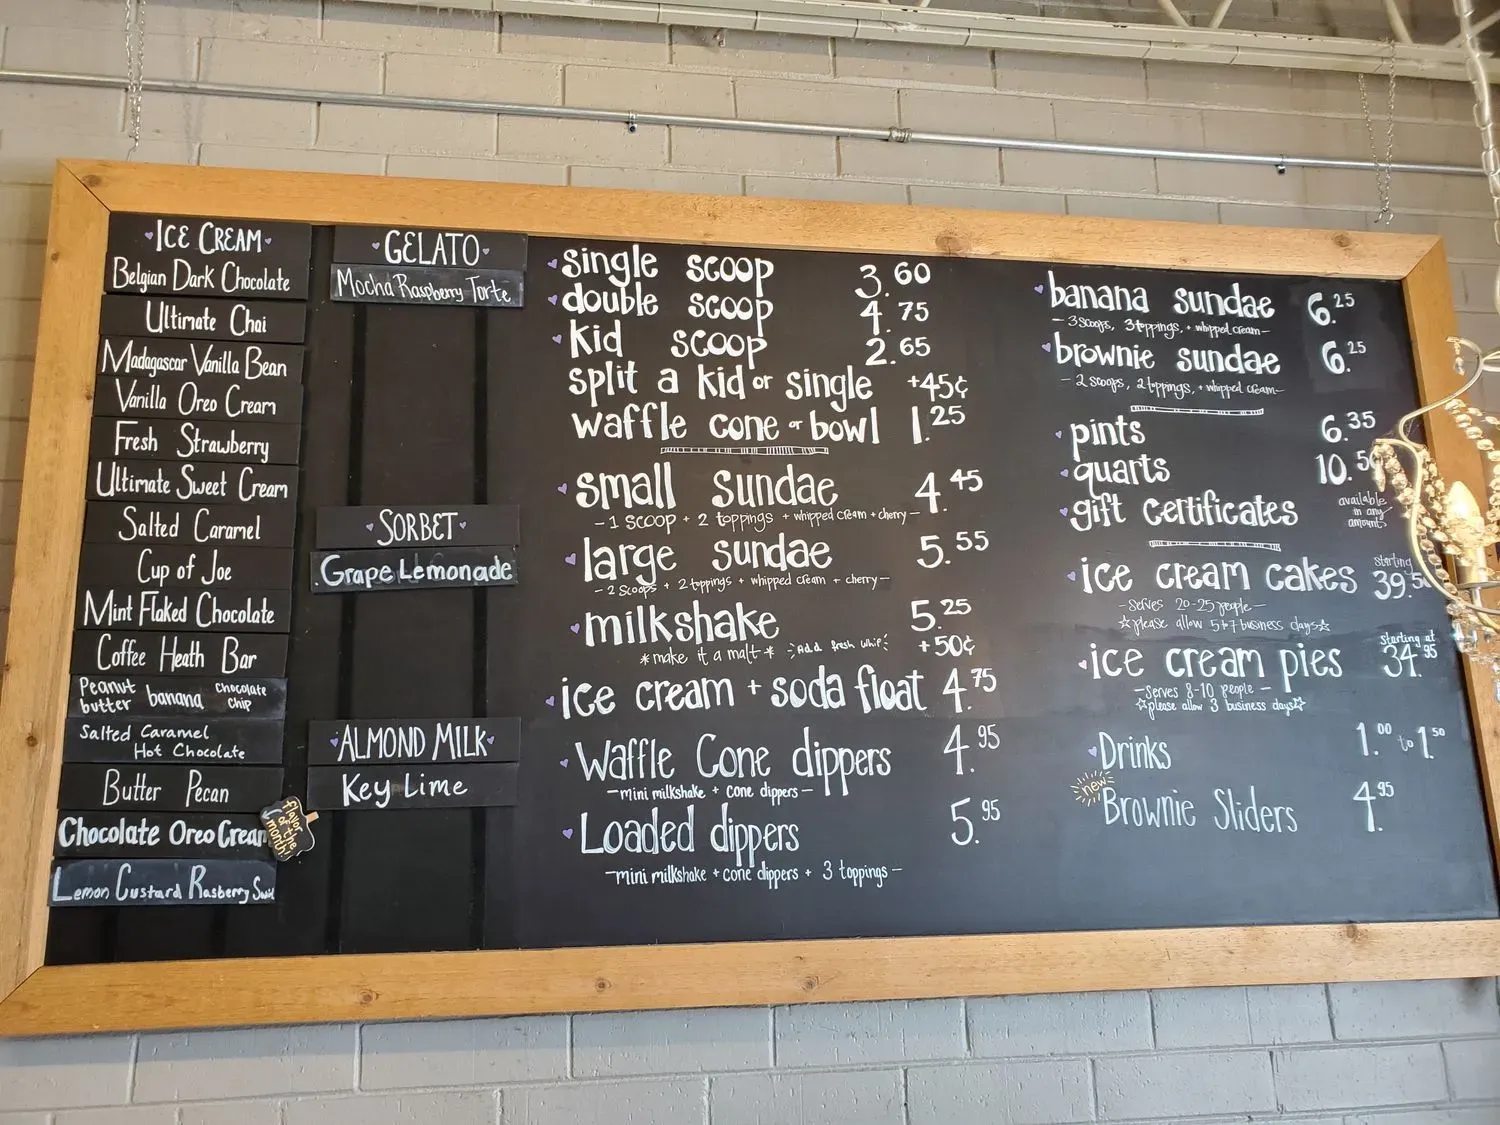 ICE CREAM
Belgian Dark Chocolate
Ultimate Chai
Madagascar Vanilla Bean
Vanilla Oreo Cream
Fresh Strawberry
Ultimate Sweet Cream
Salted Caramel
Cup of Joe
Mint Flaked Chocolate
Coffee Heath Bar
Peanut butter banana chocolate chip
Salted Caramel
Hot Chocolate
Butter Pecan
Chocolate Oreo Cream
flavor
of the
month!
Lemon Custard Rasberry
GELATO
Mocha Raspberry Torte
SORBET
Grape Lemonade
ALMOND MILK
Key Lime
single scoop 3.60
double scoop 4.75
kid scoop 2.65
split a kid or single +45¢
waffle cone or bowl 1.25
small sundae 4.45
- 1 scoop + 2 toppings + whipped cream + cherry -
large sundae 5.55
- 2 scoops + 2 toppings + whipped cream + cherry -
milkshake 5.25
*make it a malt* Add fresh whip! +50¢
ice cream + soda float 4.75
Waffle Cone dippers 4.95
- mini milkshake + cone dippers -
Loaded dippers 5.95
- mini milkshake + cone dippers + 3 toppings -
banana sundae 6.25
- 3 scoops, 3 toppings, + whipped cream -
brownie sundae 6.25
- 2 scoops, 2 toppings, + whipped cream -
pints 6.35
quarts 10.50
gift certificates available in any amount
ice cream cakes starting 39.50
- serves 20-25 people -
☆please allow 5+7 business days☆
ice cream pies starting at 34.95
- serves 8-10 people -
☆please allow 3 business days☆
Drinks 1.00 to 1.50
new
Brownie Sliders 4.95